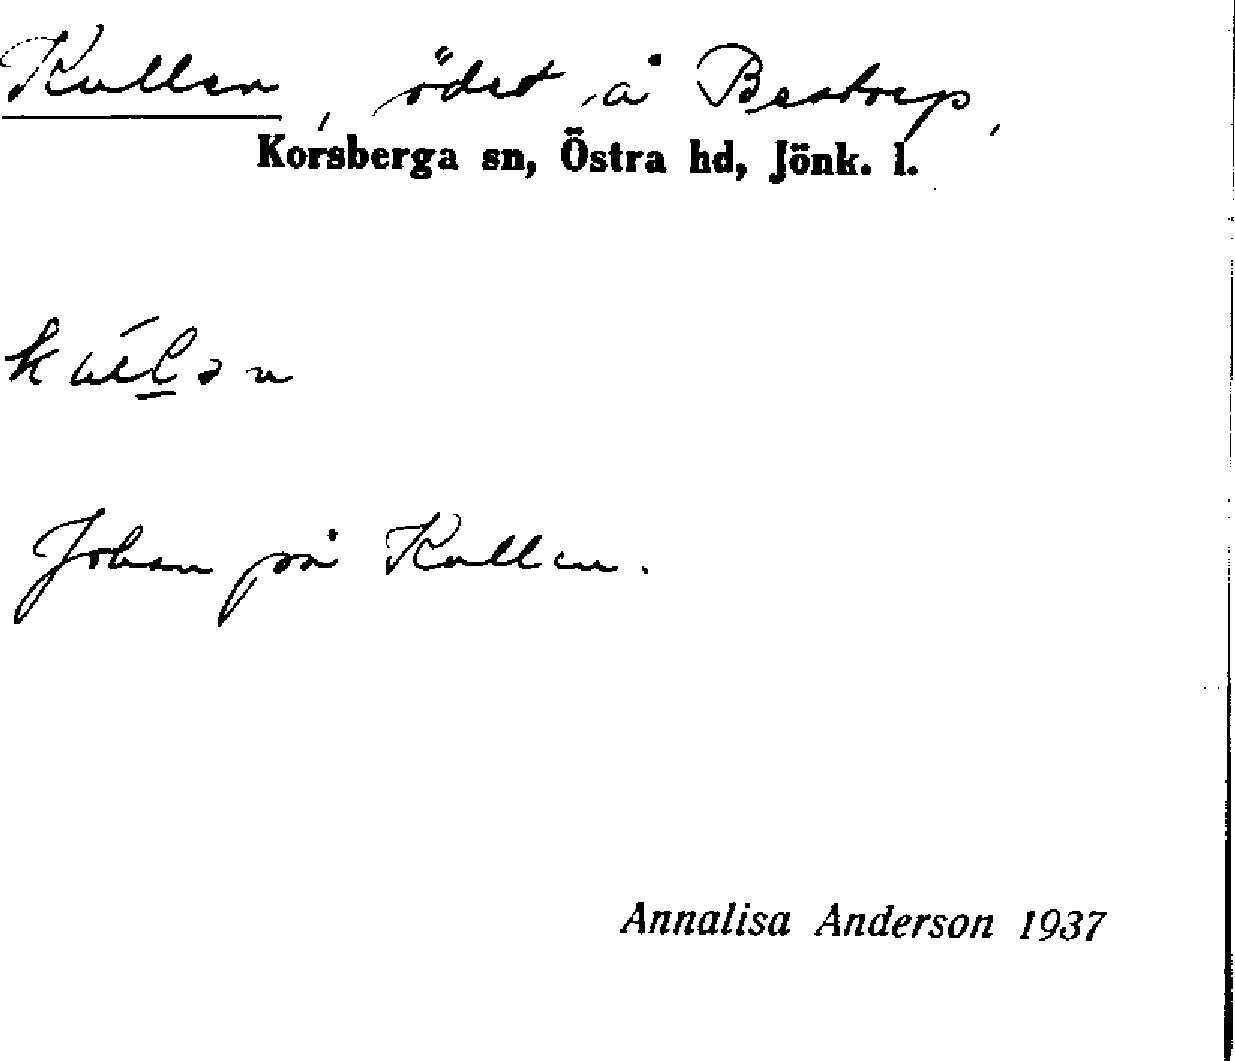 Kullen, ödet å Bestrup,
Korsberga sn, Östra hd, Jönk. l.
Johan på Kullen.
Annalisa Anderson 1937